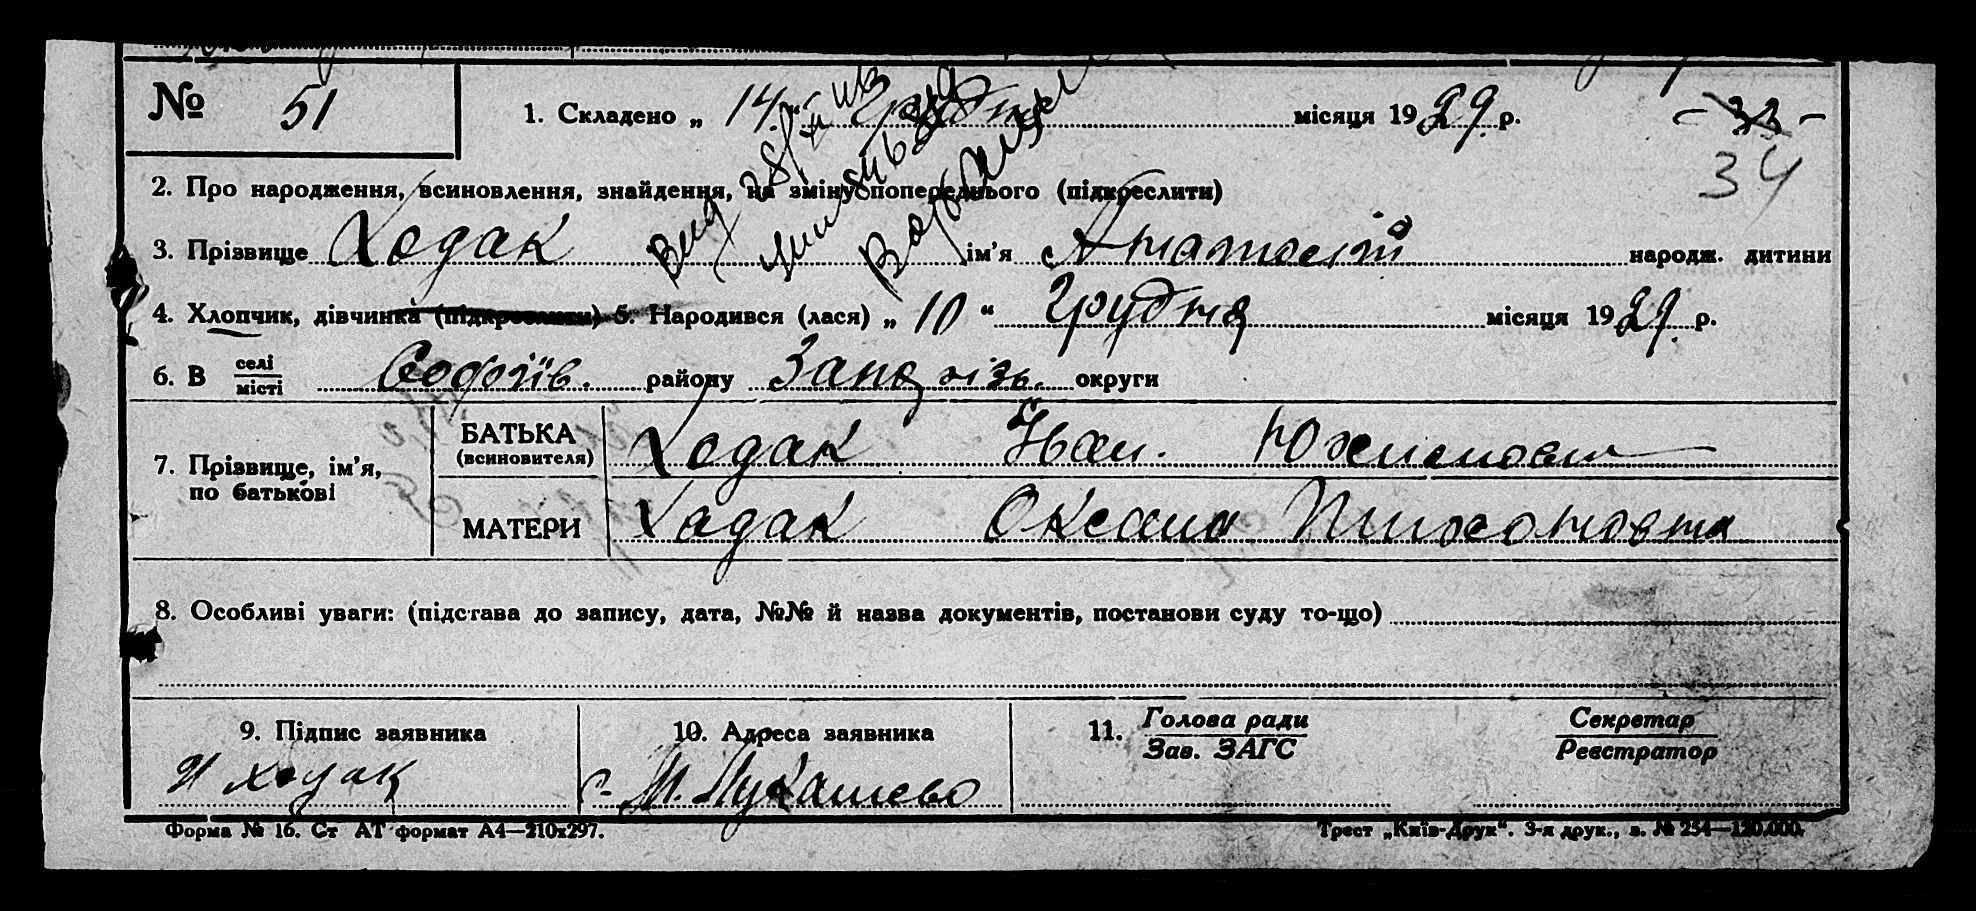 № 51
1. Складено „ 14 “ Грудня місяця 1929 р.
- 33 -
34
2. Про народження, всиновлення, знайдення, на зміну попереднього (підкреслити)
3. Прізвище Ходак ім'я Анатолій народж. дитини
4. Хлопчик, дівчинка (підкреслити) 5. Народився (лася) „ 10 “ Грудня місяця 1929 р.
6. В селі/місті Софіїв. району Запорізь. округи
7. Прізвище, ім'я, по батькові
БАТЬКА (всиновителя) Ходак Йван. Юхимович
МАТЕРИ Ходак Оксана Тихоновна
8. Особливі уваги: (підстава до запису, дата, №№ й назва документів, постанови суду то-що)
9. Підпис заявника
10. Адреса заявника
11. Голова ради/Зав. ЗАГС
Секретар/Реєстратор
И Ходак
с. М. Лукашево
Форма № 16. Ст АТ формат А4—210х297.
Трест „Київ-Друк“. 3-я друк., з. № 254—120.000.